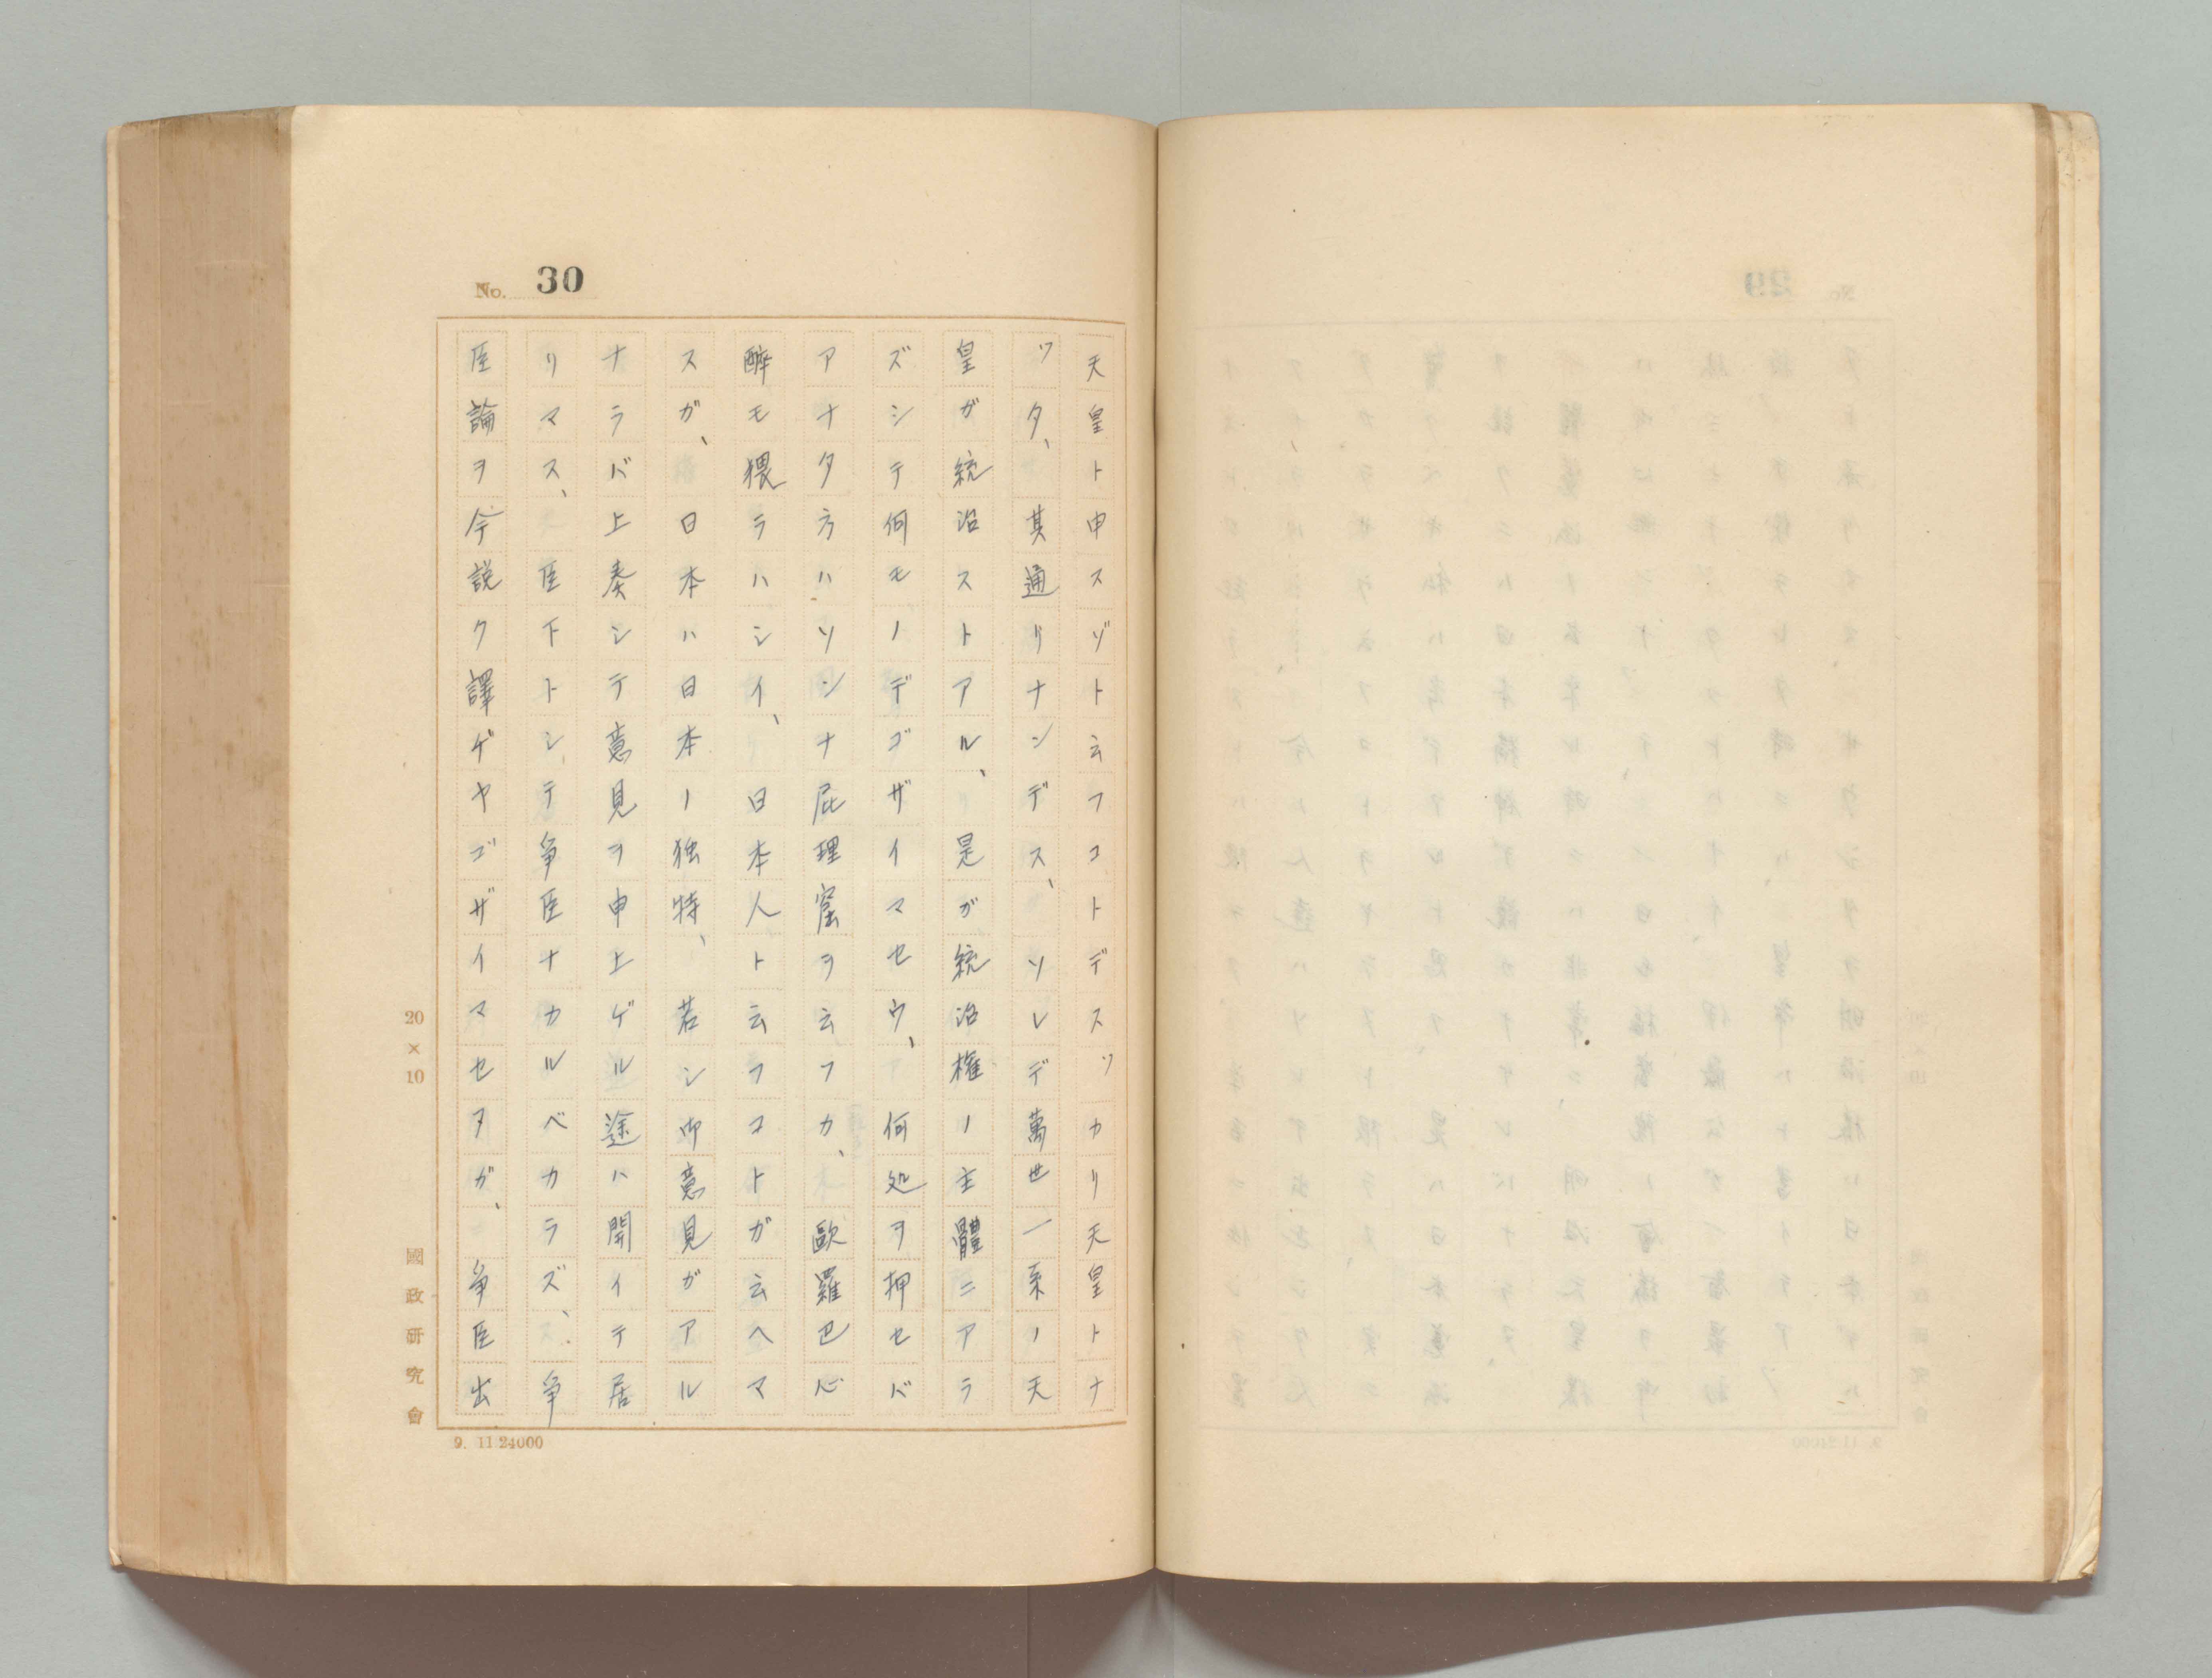 No. 30
天皇ト申スゾト云フコトデスッカリ天皇トナ
ツタ、其通リナンデス、ソレデ萬世一系ノ天
皇ガ統治ストアル、是ガ統治権ノ主體ニアラ
ズシテ何モノデゴザイマセウ、何処ヲ押セバ
アナタ方ハソンナ屁理窟ヲ云フカ、歐羅巴心
醉モ猥ラハシイ、日本人ト云フコトガ云ヘマ
スガ、日本ハ日本ノ独特、若シ御意見ガアル
ナラバ上奏シテ意見ヲ申上ゲル途ハ開イテ居
リマス、臣下トシテ争臣ナカルベカラズ、争
臣論ヲ今説ク譯ゲヤゴザイマセヌガ、争臣出
20×10
國政研究會
9. 11 24000